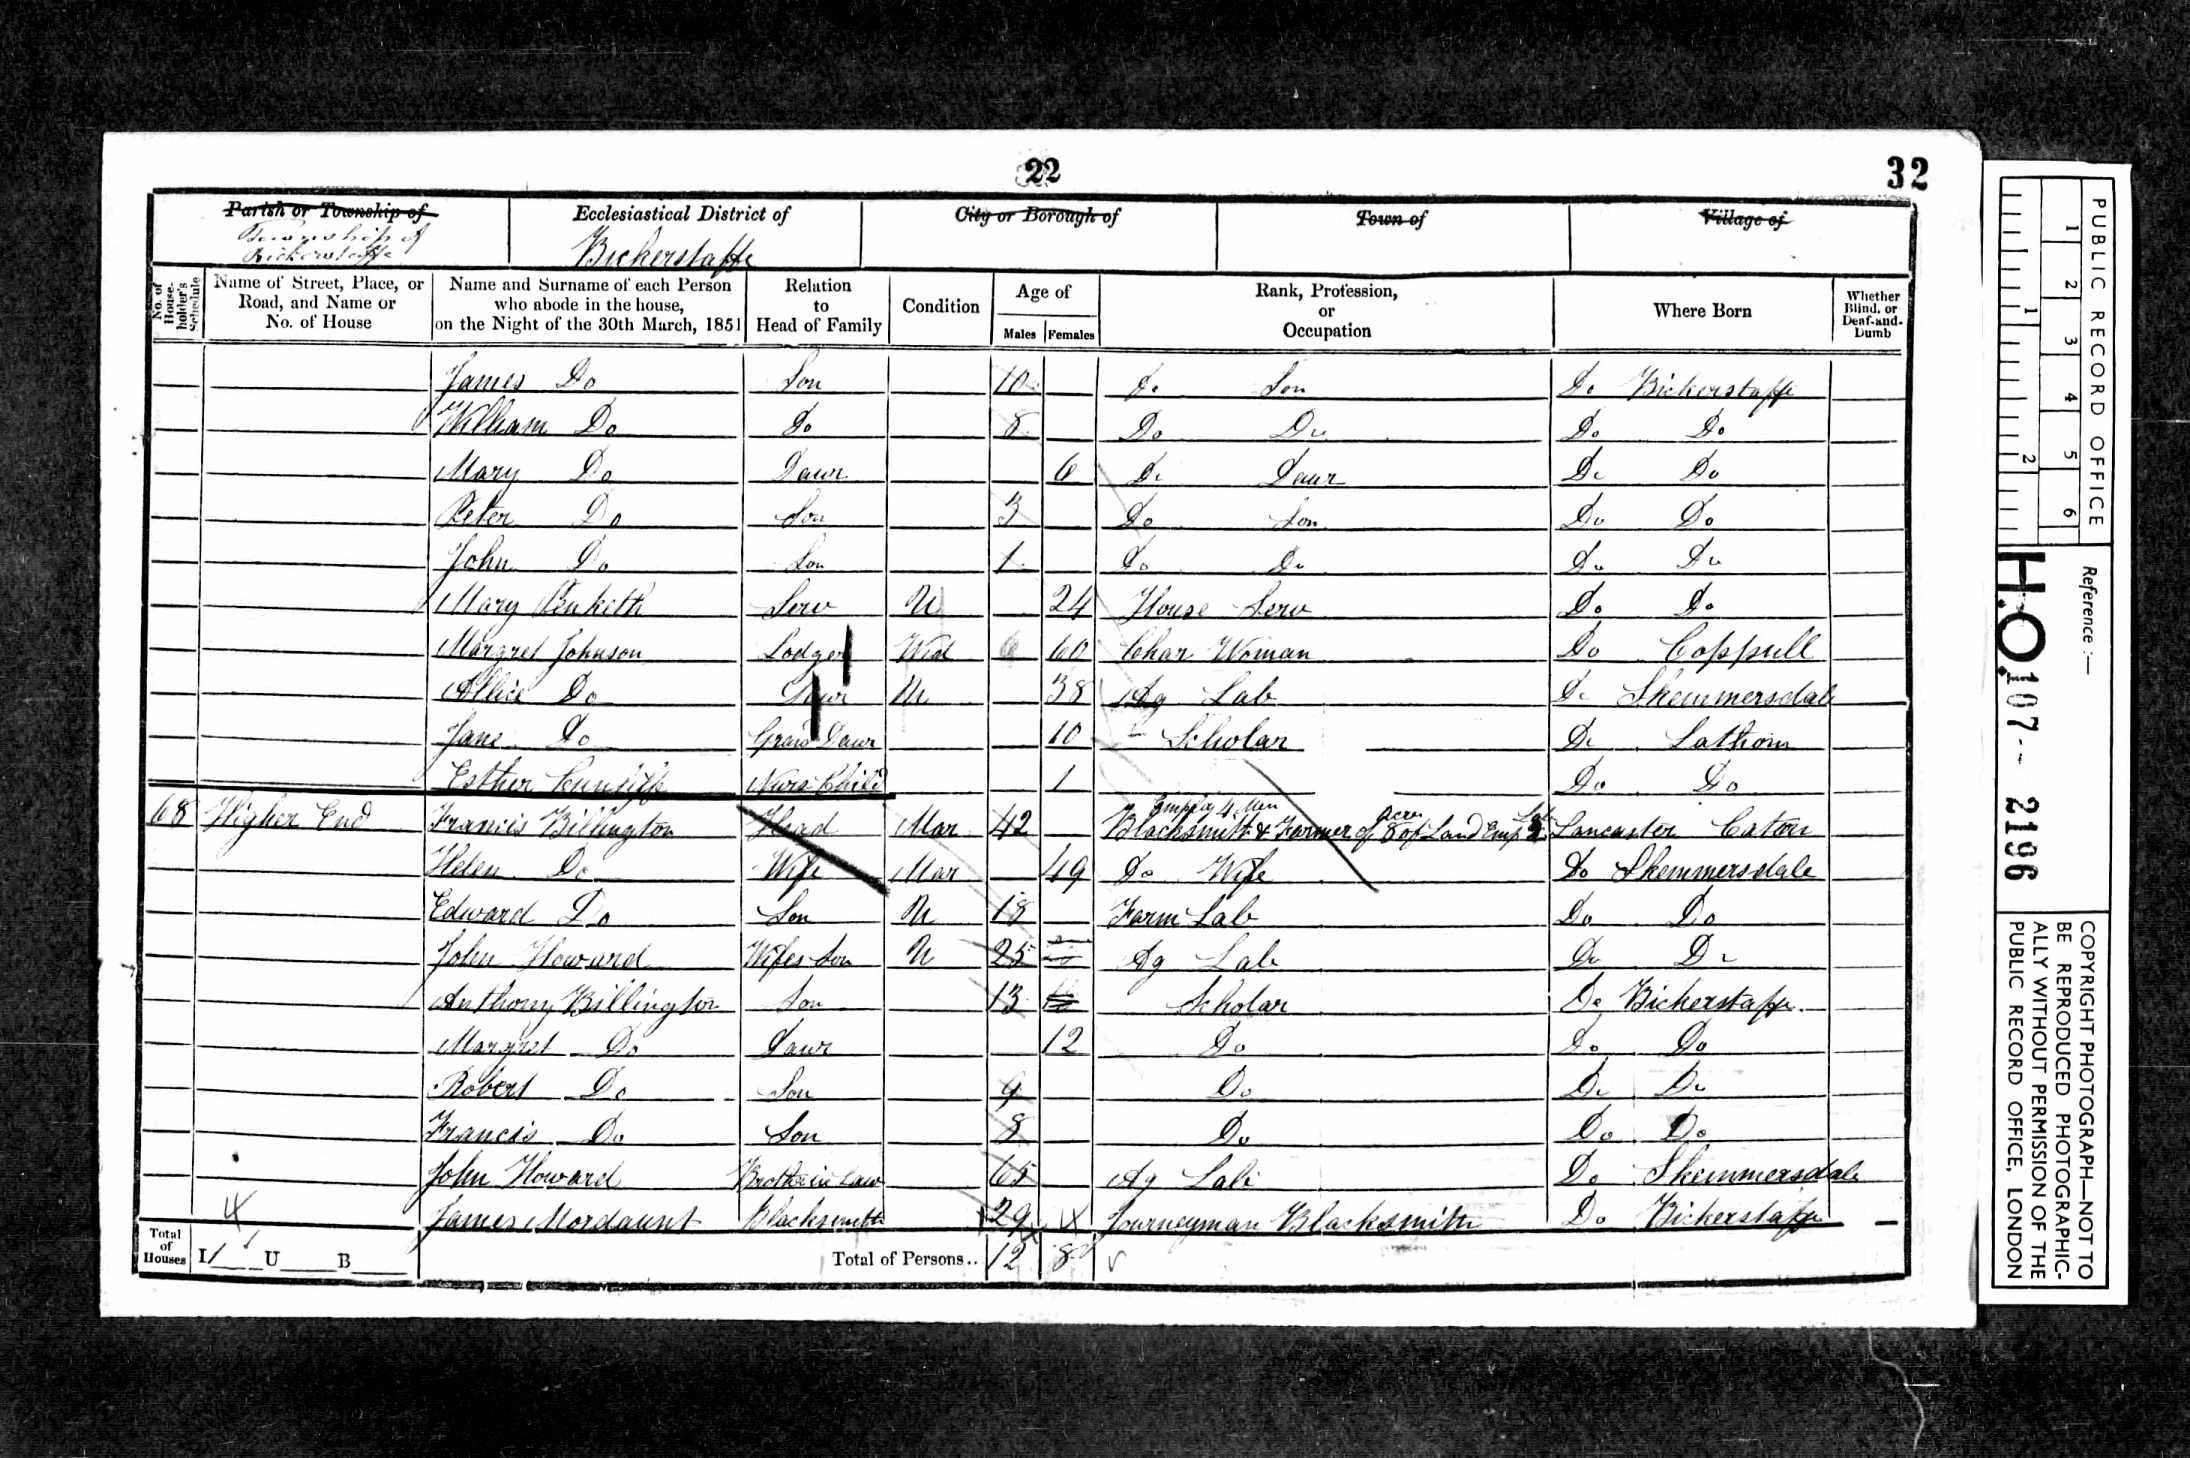 22
32
Parish or Township of
Township of
Bickerstaffe
Ecclesiastical District of
Bickerstaffe
City or Borough of
Town of
Village of
No. of House-holder's Schedule
Name of Street, Place, or Road, and Name or No. of House
Name and Surname of each Person who abode in the house, on the Night of the 30th March, 1851
Relation to Head of Family
Condition
Age of
Males
Females
Rank, Profession, or Occupation
Where Born
Whether Blind, or Deaf-and-Dumb
James Do Son 10 Do Son Do Bickerstaffe
William Do Do 8 Do Do Do Do
Mary Do Daur 6 Do Daur Do Do
Peter Do Son 3 Do Son Do Do
John Do Son 1 Do Do Do Do
Mary Penketh Serv U 24 House Serv Do Do
Margret Johnson Lodger Wid 60 Char Woman Do Coppull
Allice Do Daur U 38 Ag Lab Do Skemmersdale
Jane Do Grand Daur 10 Scholar Do Lathom
Esther Cunliffe Nurs Child 1 Do Do
68 Higher End Francis Billington Head Mar 42 Blacksmith & Farmer of 8 acre of Land Emp 2 Lab Employ 4 Men Lancaster Caton
Helen Do Wife Mar 49 Do Wife Do Skemmersdale
Edward Do Son U 18 Farm Lab Do Do
John Howard Wifes Son U 25 Ag Lab Do Do
Anthony Billington Son 13 Scholar Do Bickerstaffe
Margret Do Daur 12 Do Do Do
Robert Do Son 9 Do Do Do
Francis Do Son 8 Do Do Do
John Howard Brother in Law 65 Ag Lab Do Skemmersdale
4 James Mordaunt Blacksmith 29 Journeyman Blacksmith Do Bickerstaffe
Total of Houses I 1 U B Total of Persons.. 12 8
PUBLIC RECORD OFFICE
1 2 3 4 5 6
1 2
Reference :—
H.O. 107 -- 2196
COPYRIGHT PHOTOGRAPH—NOT TO
BE REPRODUCED PHOTOGRAPHIC-
ALLY WITHOUT PERMISSION OF THE
PUBLIC RECORD OFFICE, LONDON